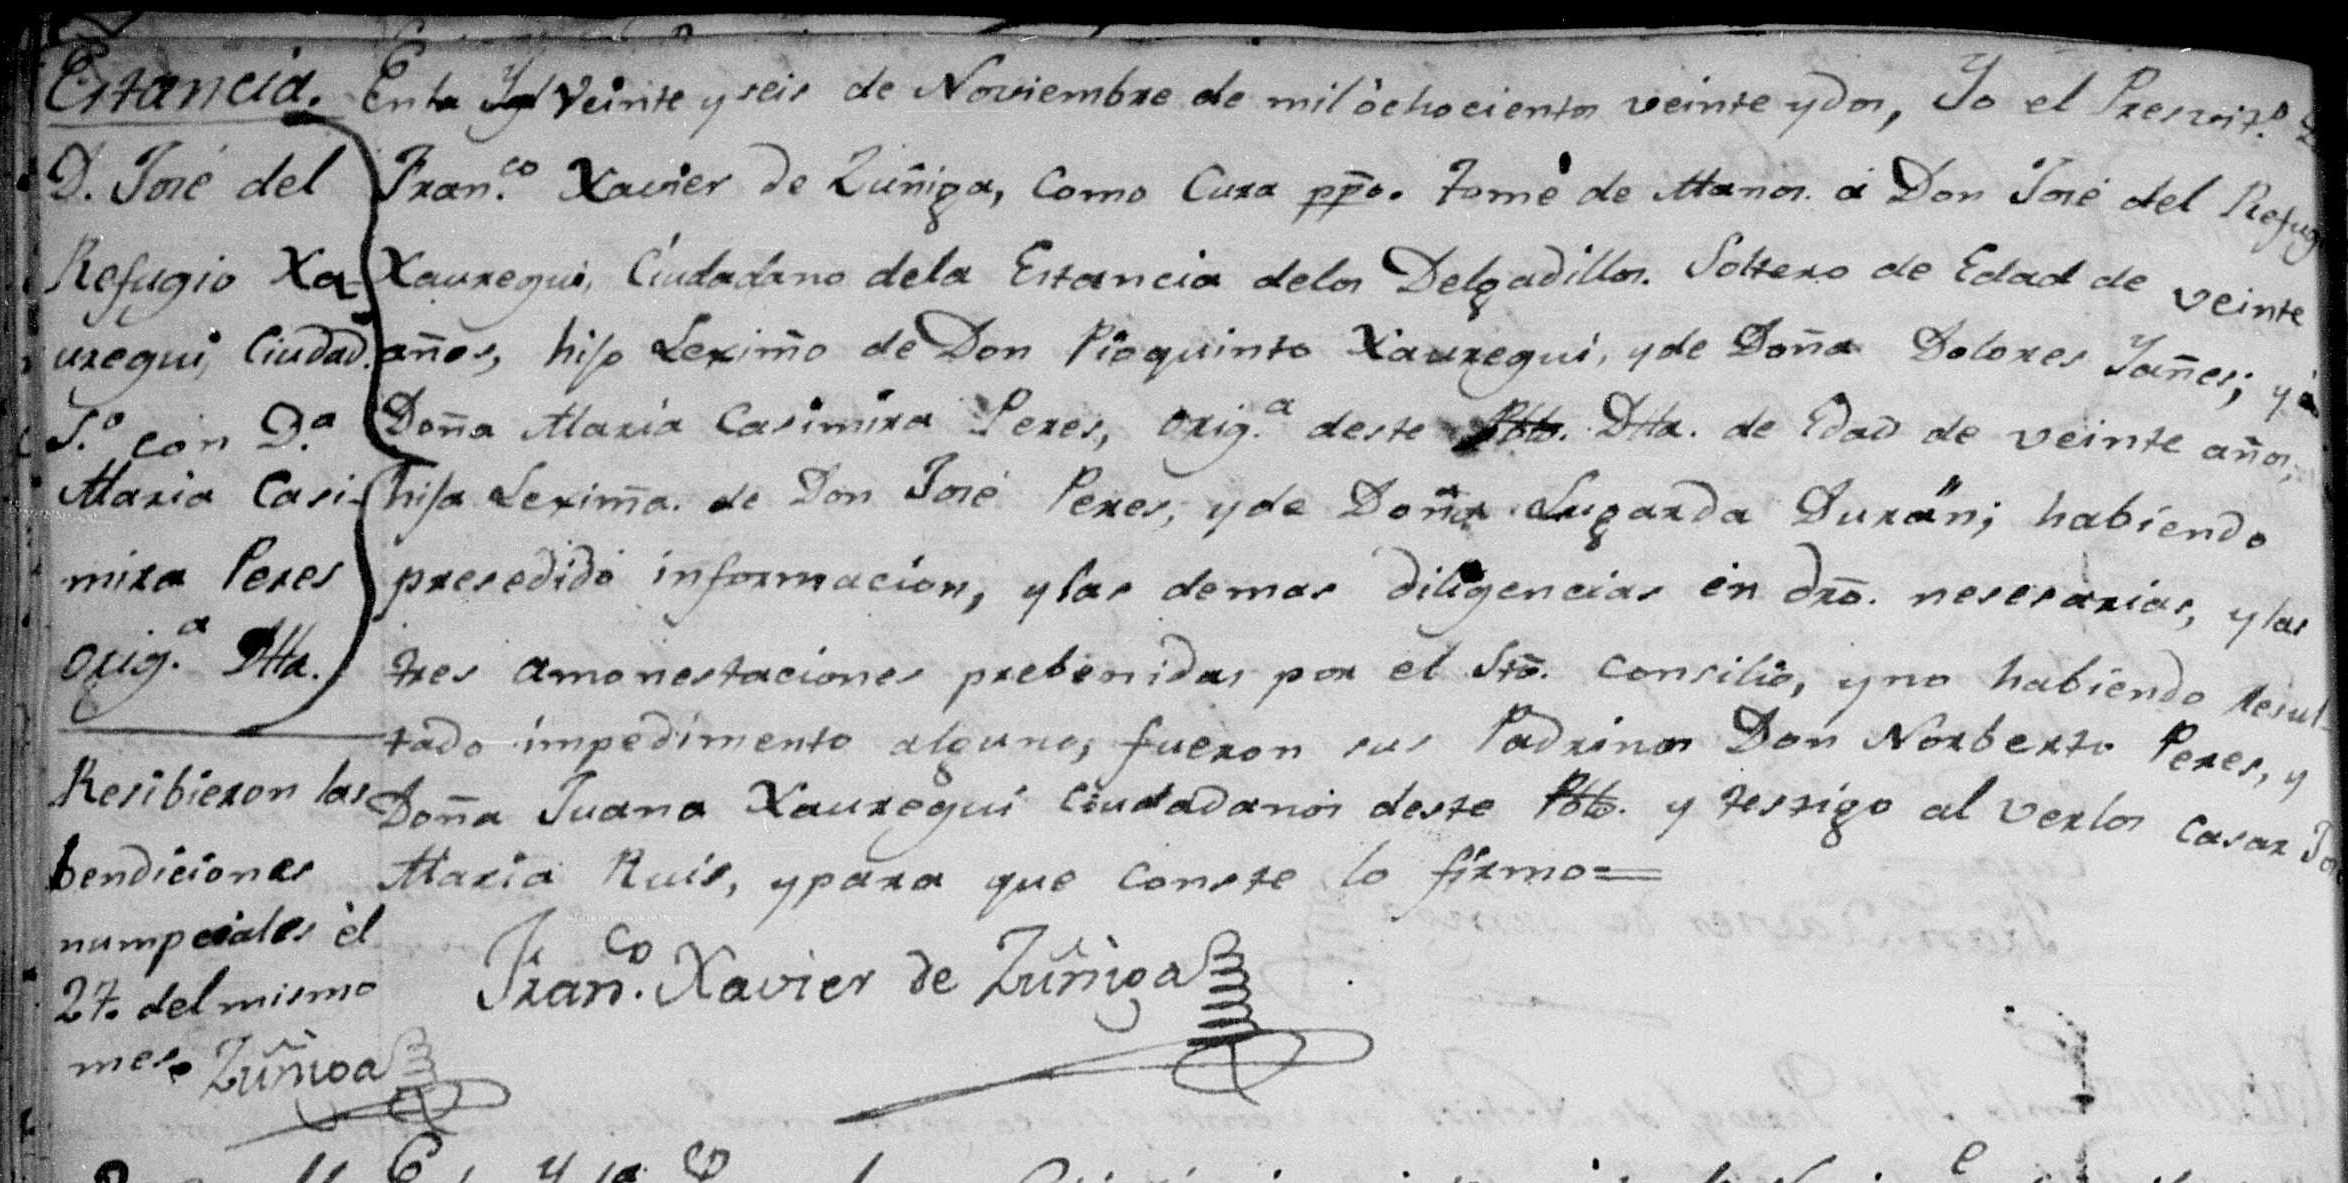 Estancia.
D. José del
Refugio Xa-
uregui, Ciudad.
S.º con D.ª
Maria Casi-
mira Peres
orig.ª Dtta.
Resibieron las
bendiciones
numpciales èl
27. del mismo
mes. Zuñiga
En la Ygl Veinte y seis de Noviembre de mil òchocientos veinte y dos, Yo el Presvit.º
Fran.co Xavier de Zuñiga, Como Cura ppõ. tomè de Manos. á Don José del Refug
Xauregui, Ciudadano dela Estancia delos Delgadillos. Soltero de Edad de veinte
años, hijo Lexim̃o de Don Pioquinto Xauregui, y de Doña Dolores Yañes; y à
Doña Maria Casimira Peres, orig.ª deste Pbto. Dtta. de Edad de veinte años,
hija Lexim̃a. de Don José Peres, y de Doña Lugarda Durän; habiendo
presedido informacion, y las demas diligencias en dr̃o. nesesarias, y las
tres amonestaciones prebenidas por el Stõ. Consilio, y no habiendo Resul-
tado impedimento alguno; fueron sus Padrinos Don Norberto Peres, y
Doña Juana Xauregui Ciudadanos deste Pbto. y testigo al verlos Casar
Maria Ruis, y para que Conste lo firmo=
Fran.co Xavier de Zuñiga